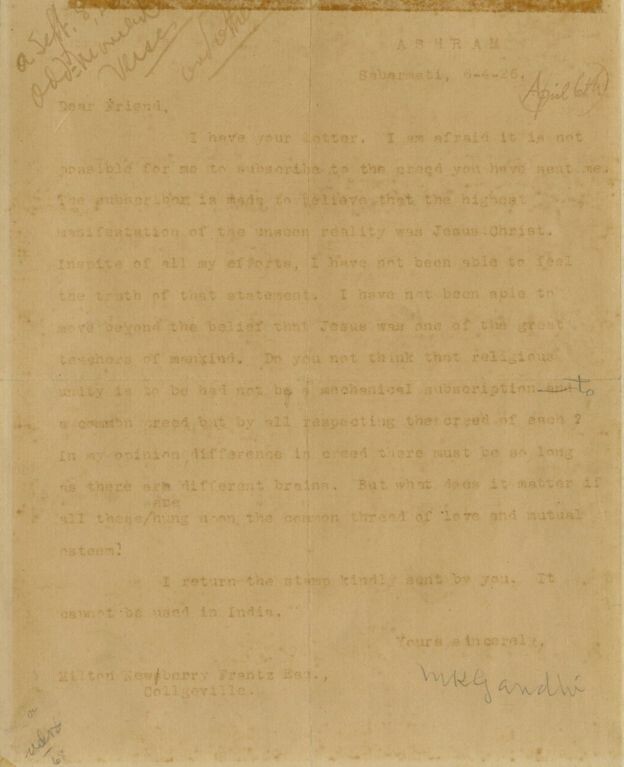 a Sept. 8,
add: Moment
Verse
and other
ASHRAM
Sabarmati, 6-4-26.
April 6th)
Dear Friend,
I have your letter. I am afraid it is not
possible for me to subscribe to the creed you have sent me.
The subscriber is made to believe that the highest
manifestation of the unseen reality was Jesus Christ.
Inspite of all my efforts, I have not been able to feel
the truth of that statement. I have not been able to
move beyond the belief that Jesus was one of the great
teachers of mankind. Do you not think that religious
unity is to be had not by a mechanical subscription and to
a common creed but by all respecting the creed of each ?
In my opinion difference in creed there must be so long
as there are different brains. But what does it matter if
all these/hung upon the common thread of love and mutual
are
esteem?
I return the stamp kindly sent by you. It
cannot be used in India.
Yours sincerely,
MKGandhi
Milton New/berry Frantz Esq.,
Collgeville.